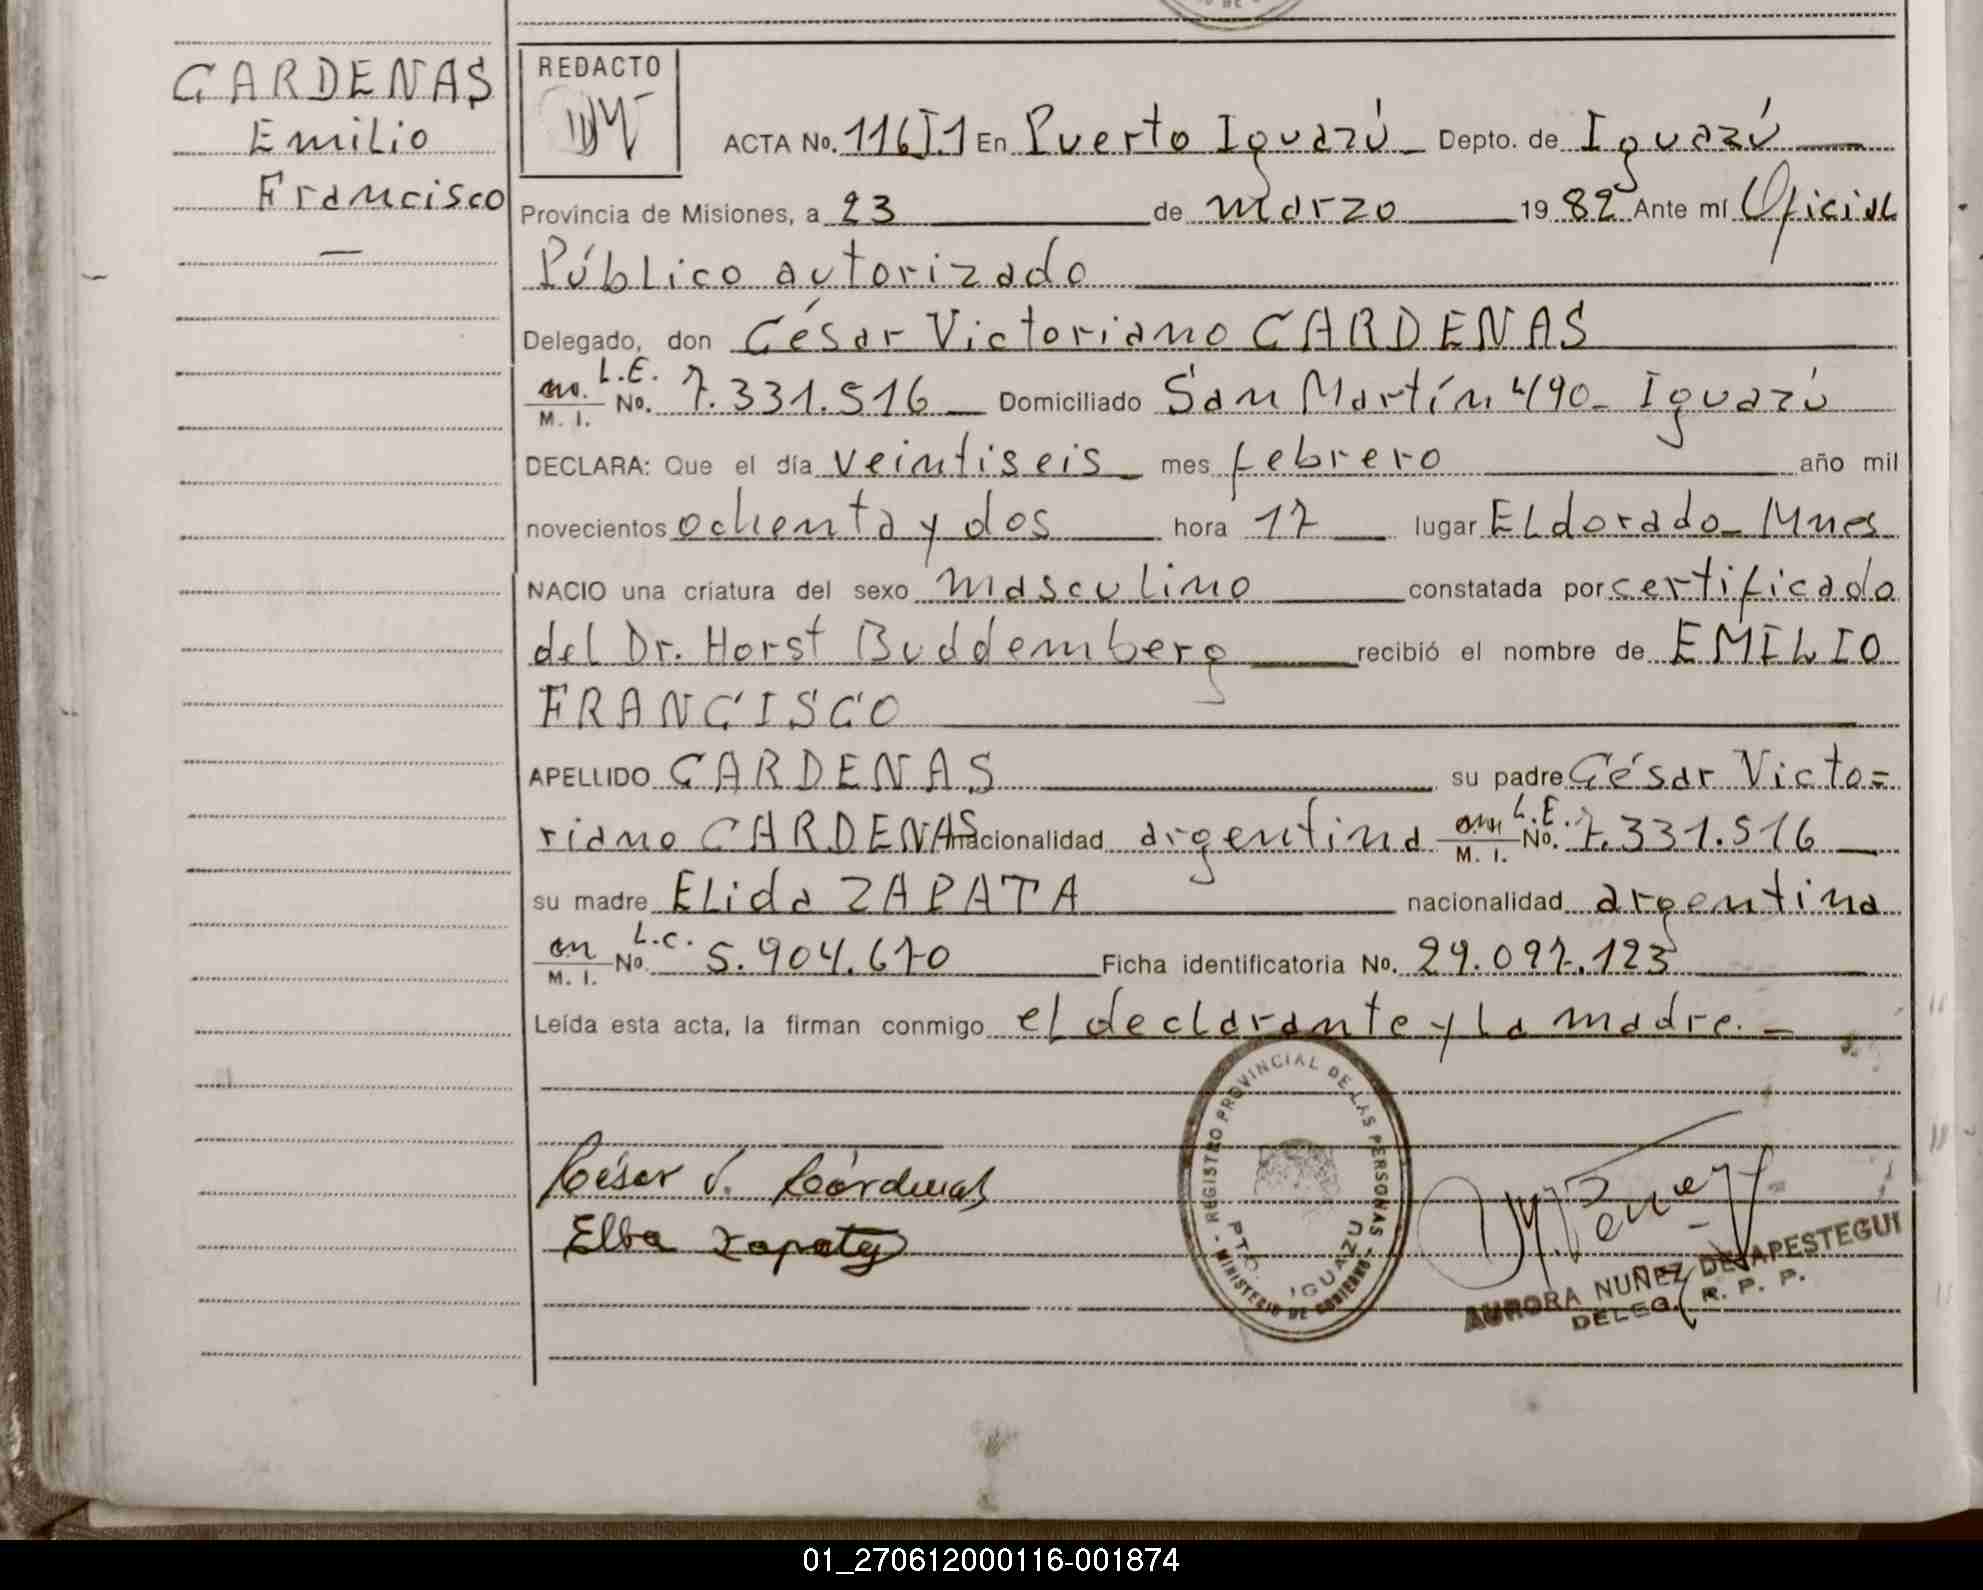 CARDENAS
Emilio
Francisco
REDACTO
ACTA No. 116 T.1 En Puerto Iguazú Depto. de Iguazú
Provincia de Misiones, a 23 de marzo 1982 Ante mí Oficial
Público autorizado
Delegado, don César Victoriano CARDENAS
M. I. L.E. No. 7.331.516 Domiciliado San Martín 490 - Iguazú
DECLARA: Que el día veintiseis mes febrero año mil
novecientos ochenta y dos hora 17 lugar Eldorado - Mnes
NACIO una criatura del sexo masculino constatada por certificado
del Dr. Horst Buddemberg recibió el nombre de EMILIO
FRANCISCO
APELLIDO CARDENAS su padre César Victo=
riano CARDENAS nacionalidad argentina M. I. L.E. No. 7.331.516
su madre Elida ZAPATA nacionalidad argentina
M. I. L.C. No. 5.904.670 Ficha identificatoria No. 29.097.123
Leída esta acta, la firman conmigo el declarante y la madre. -
REGISTRO PROVINCIAL DE LAS PERSONAS
PTO. IGUAZU
- MINISTERIO DE GOBIERNO -
César V. Cárdenas
Elba Zapata
AURORA NUÑEZ DE APESTEGUI
DELEG. R. P. P.
01_270612000116-001874